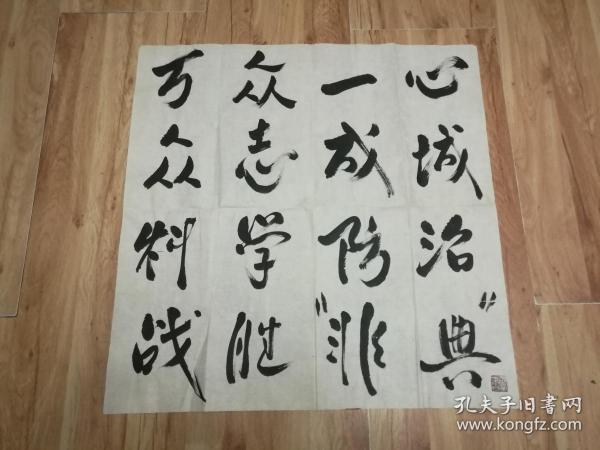 万众一心
众志成城
科学防治
战胜"非典"
孔夫子旧书网
www.kongfz.com